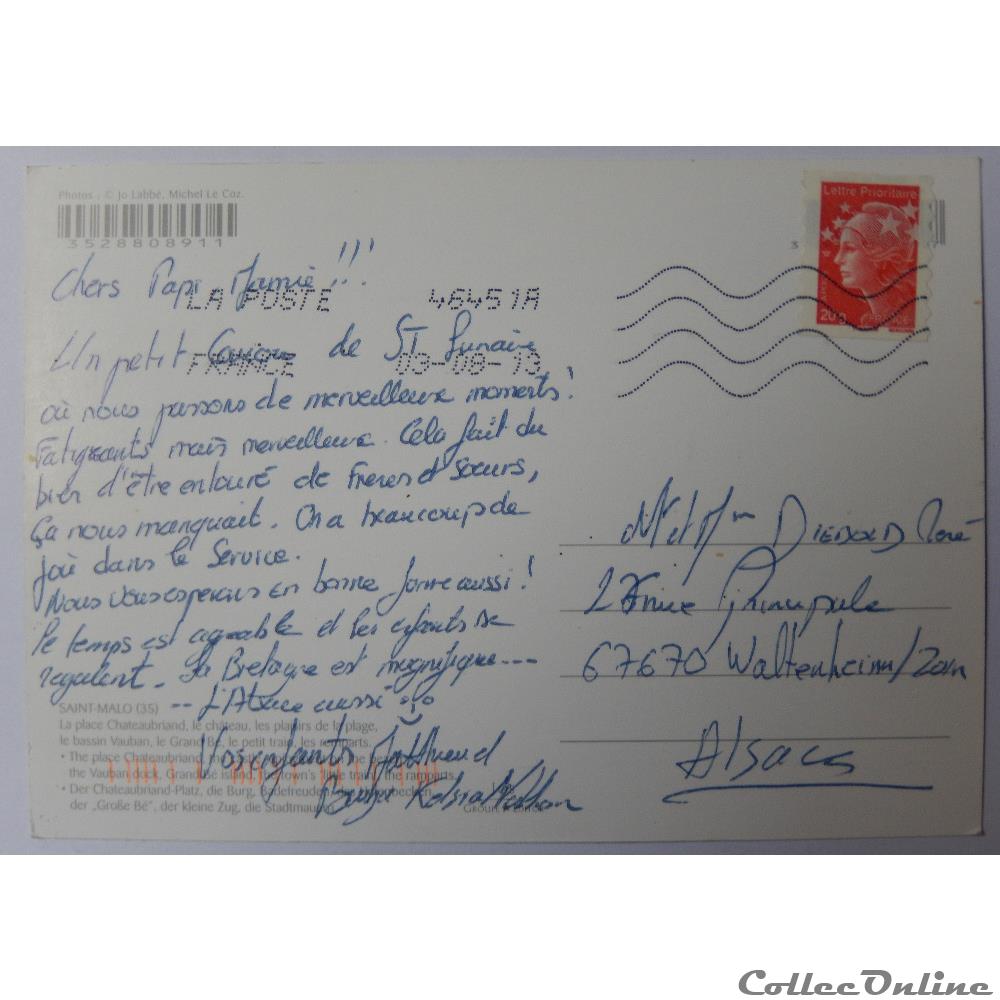 Photos : © Jo Labbé, Michel Le Coz.
3528808911
Lettre Prioritaire
20g FRANCE
3
LA POSTE 46451A
FRANCE 03-08-13
Chers Papi Mamie !!!
Un petit de ST Lunaire
où nous passons de merveilleux moments !
Fatiguants mais merveilleux. Cela fait du
bien d'être entouré de Frères et Soeurs,
Ça nous manquait. On a beaucoup de
joie dans le Service.
Nous vous esperons en bonne forme aussi !
Le temps est agreable et les enfants se
regalent. La Bretagne est magnifique ---
-- L'Alsace aussi
Vos enfants
SAINT-MALO (35)
La place Chateaubriand, le château, les plaisirs de la plage,
le bassin Vauban, le Grand Bé, le petit train, les remparts.
• The place Chateaubriand, the
the Vauban Grand Bé island, the town's little train, the ramparts.
• Der Chateaubriand-Platz, die Burg, Badefreuden,
der „Große Bé", der kleine Zug, die Stadtmauern
M et Mm DIEBOLD René
27 rue Principale
67670 Waltenheim/Zorn
Alsace
CollecOnline